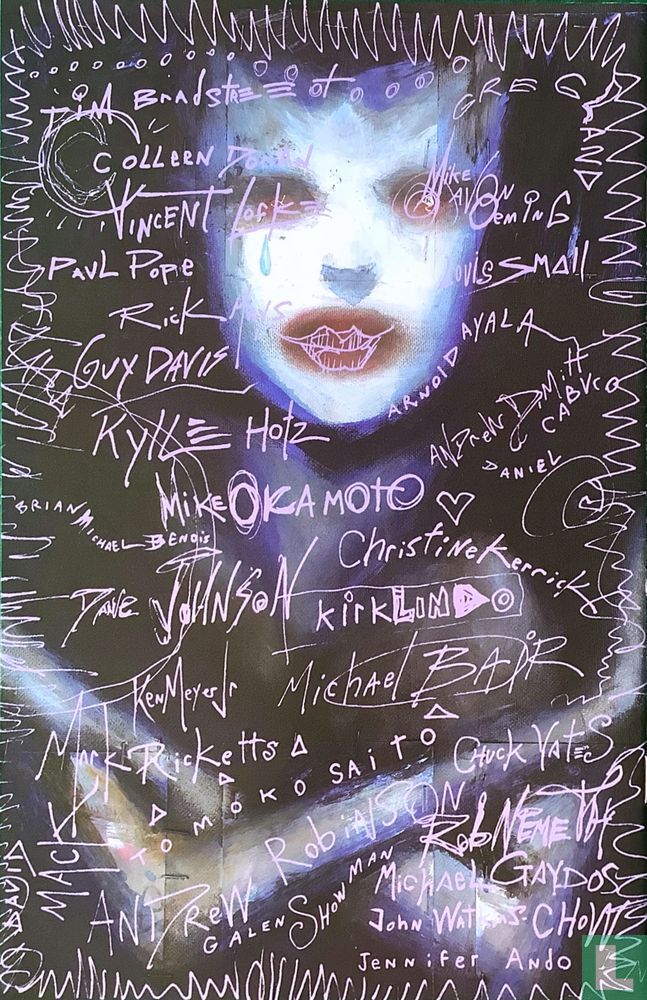 TIM BRADSTREET
GREG LAND
COLLEEN DORAN
MIKE AVON OEMING
VINCENT LOCKE
PAUL POPE
LOUIS SMALL
RICK MAYS
ARNOLD AYALA
GUY DAVIS
ANDREW DIMITT
KYLE HOTZ
DANIEL CABUCO
MIKE OKAMOTO
BRIAN MICHAEL BENDIS
Christine Kerrick
DAVE JOHNSON
KIRK LINDO
KEN MEYER Jr
Michael BAIR
Mark Ricketts
TOMOKO SAITO
CHUCK YATES
DAVID MACK
ANDREW ROBINSON
ROB NEMETH
GALEN SHOWMAN
MICHAEL GAYDOS
John WATKINS-CHOW
Jennifer Ando